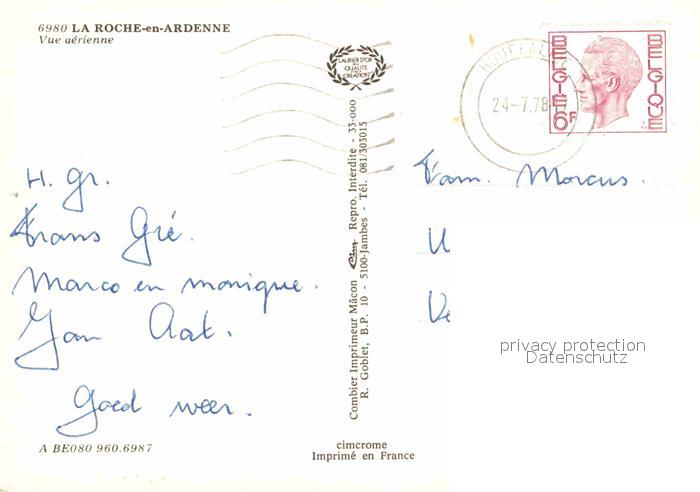 6980 LA ROCHE-en-ARDENNE
Vue aérienne
LAURIER D'OR
DE LA
QUALITÉ
CRÉATION
HOUFFALI
24-7.78
BELGIE
6F
BELGIQUE
H. gr.
Frans Gré.
Marco en monique.
Jan Aat.
Goed weer.
Fam. Marcus.
Combier Imprimeur Mâcon Cim Repro. Interdite - 33-000
R. Goblet, B.P. 10 - 5100-Jambes - Tél. 081/303015
privacy protection
Datenschutz
A BE080 960.6987
cimcrome
Imprimé en France